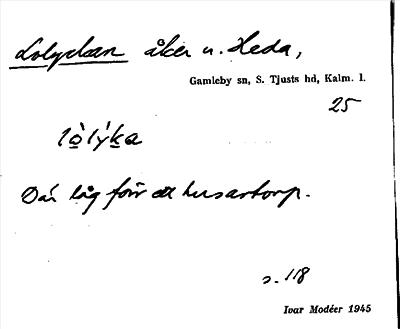 Lolyckan åker u. Heda,
Gamleby sn, S. Tjusts hd, Kalm. l.
25
lòlýka
Där låg förr ett husartorp.
s. 118
Ivar Modéer 1945